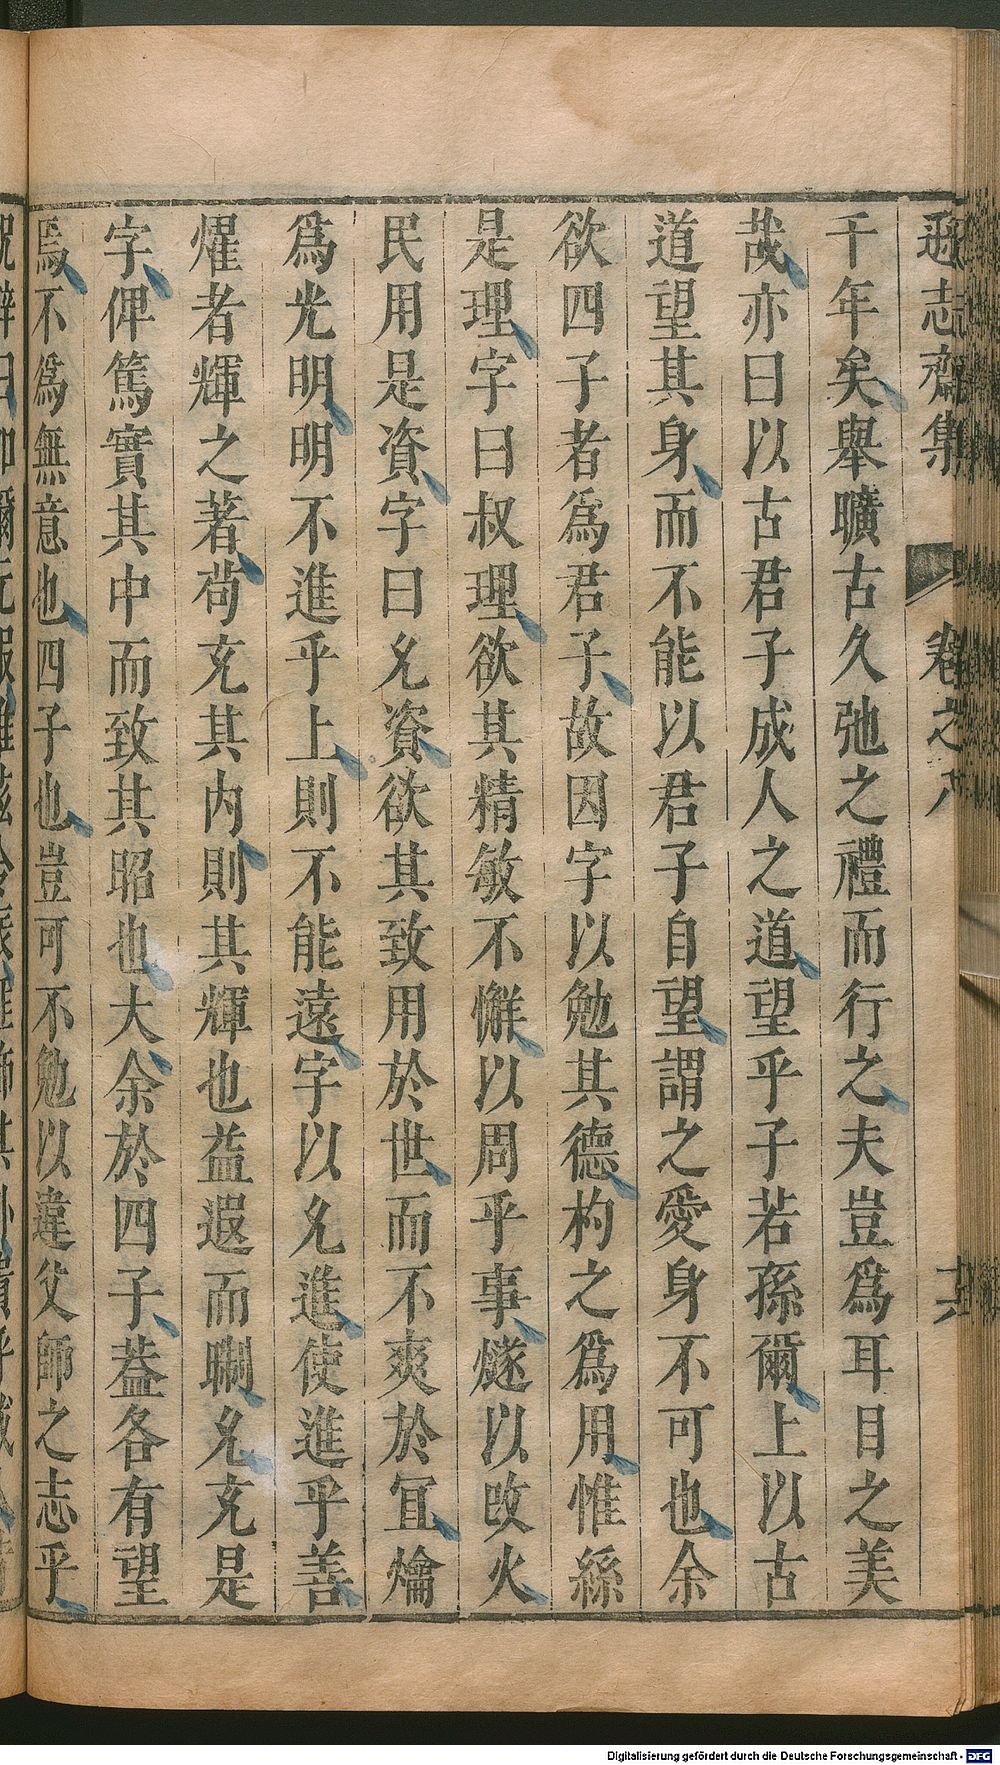 遜志齋集 卷之八 十六
千年矣舉曠古久弛之禮而行之夫豈爲耳目之美
哉亦曰以古君子成人之道望乎子若孫爾上以古
道望其身而不能以君子自望謂之愛身不可也余
欲四子者爲君子故因字以勉其德杓之爲用惟絲
是理字曰叔理欲其精敏不懈以周乎事燧以改火
民用是資字曰允資欲其致用於世而不爽於冝爚
爲光明明不進乎上則不能遠字以允進使進乎善
燿者輝之著茍充其内則其輝也益遐而嘲允充是
字俾篤實其中而致其昭也大余於四子葢各有望
焉不爲無意也四子也豈可不勉以違父師之志乎
Digitalisierung gefördert durch die Deutsche Forschungsgemeinschaft - DFG